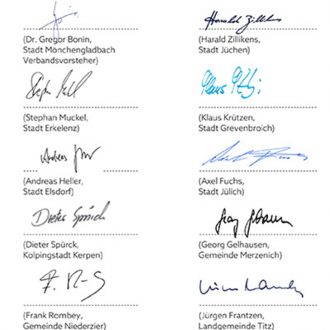 (Dr. Gregor Bonin,
Stadt Mönchengladbach
Verbandsvorsteher)
Harald Zillikens
(Harald Zillikens,
Stadt Jüchen)
(Stephan Muckel,
Stadt Erkelenz)
(Klaus Krützen,
Stadt Grevenbroich)
(Andreas Heller,
Stadt Elsdorf)
(Axel Fuchs,
Stadt Jülich)
Dieter Spürck
(Dieter Spürck,
Kolpingstadt Kerpen)
(Georg Gelhausen,
Gemeinde Merzenich)
(Frank Rombey,
Gemeinde Niederzier)
(Jürgen Frantzen,
Landgemeinde Titz)